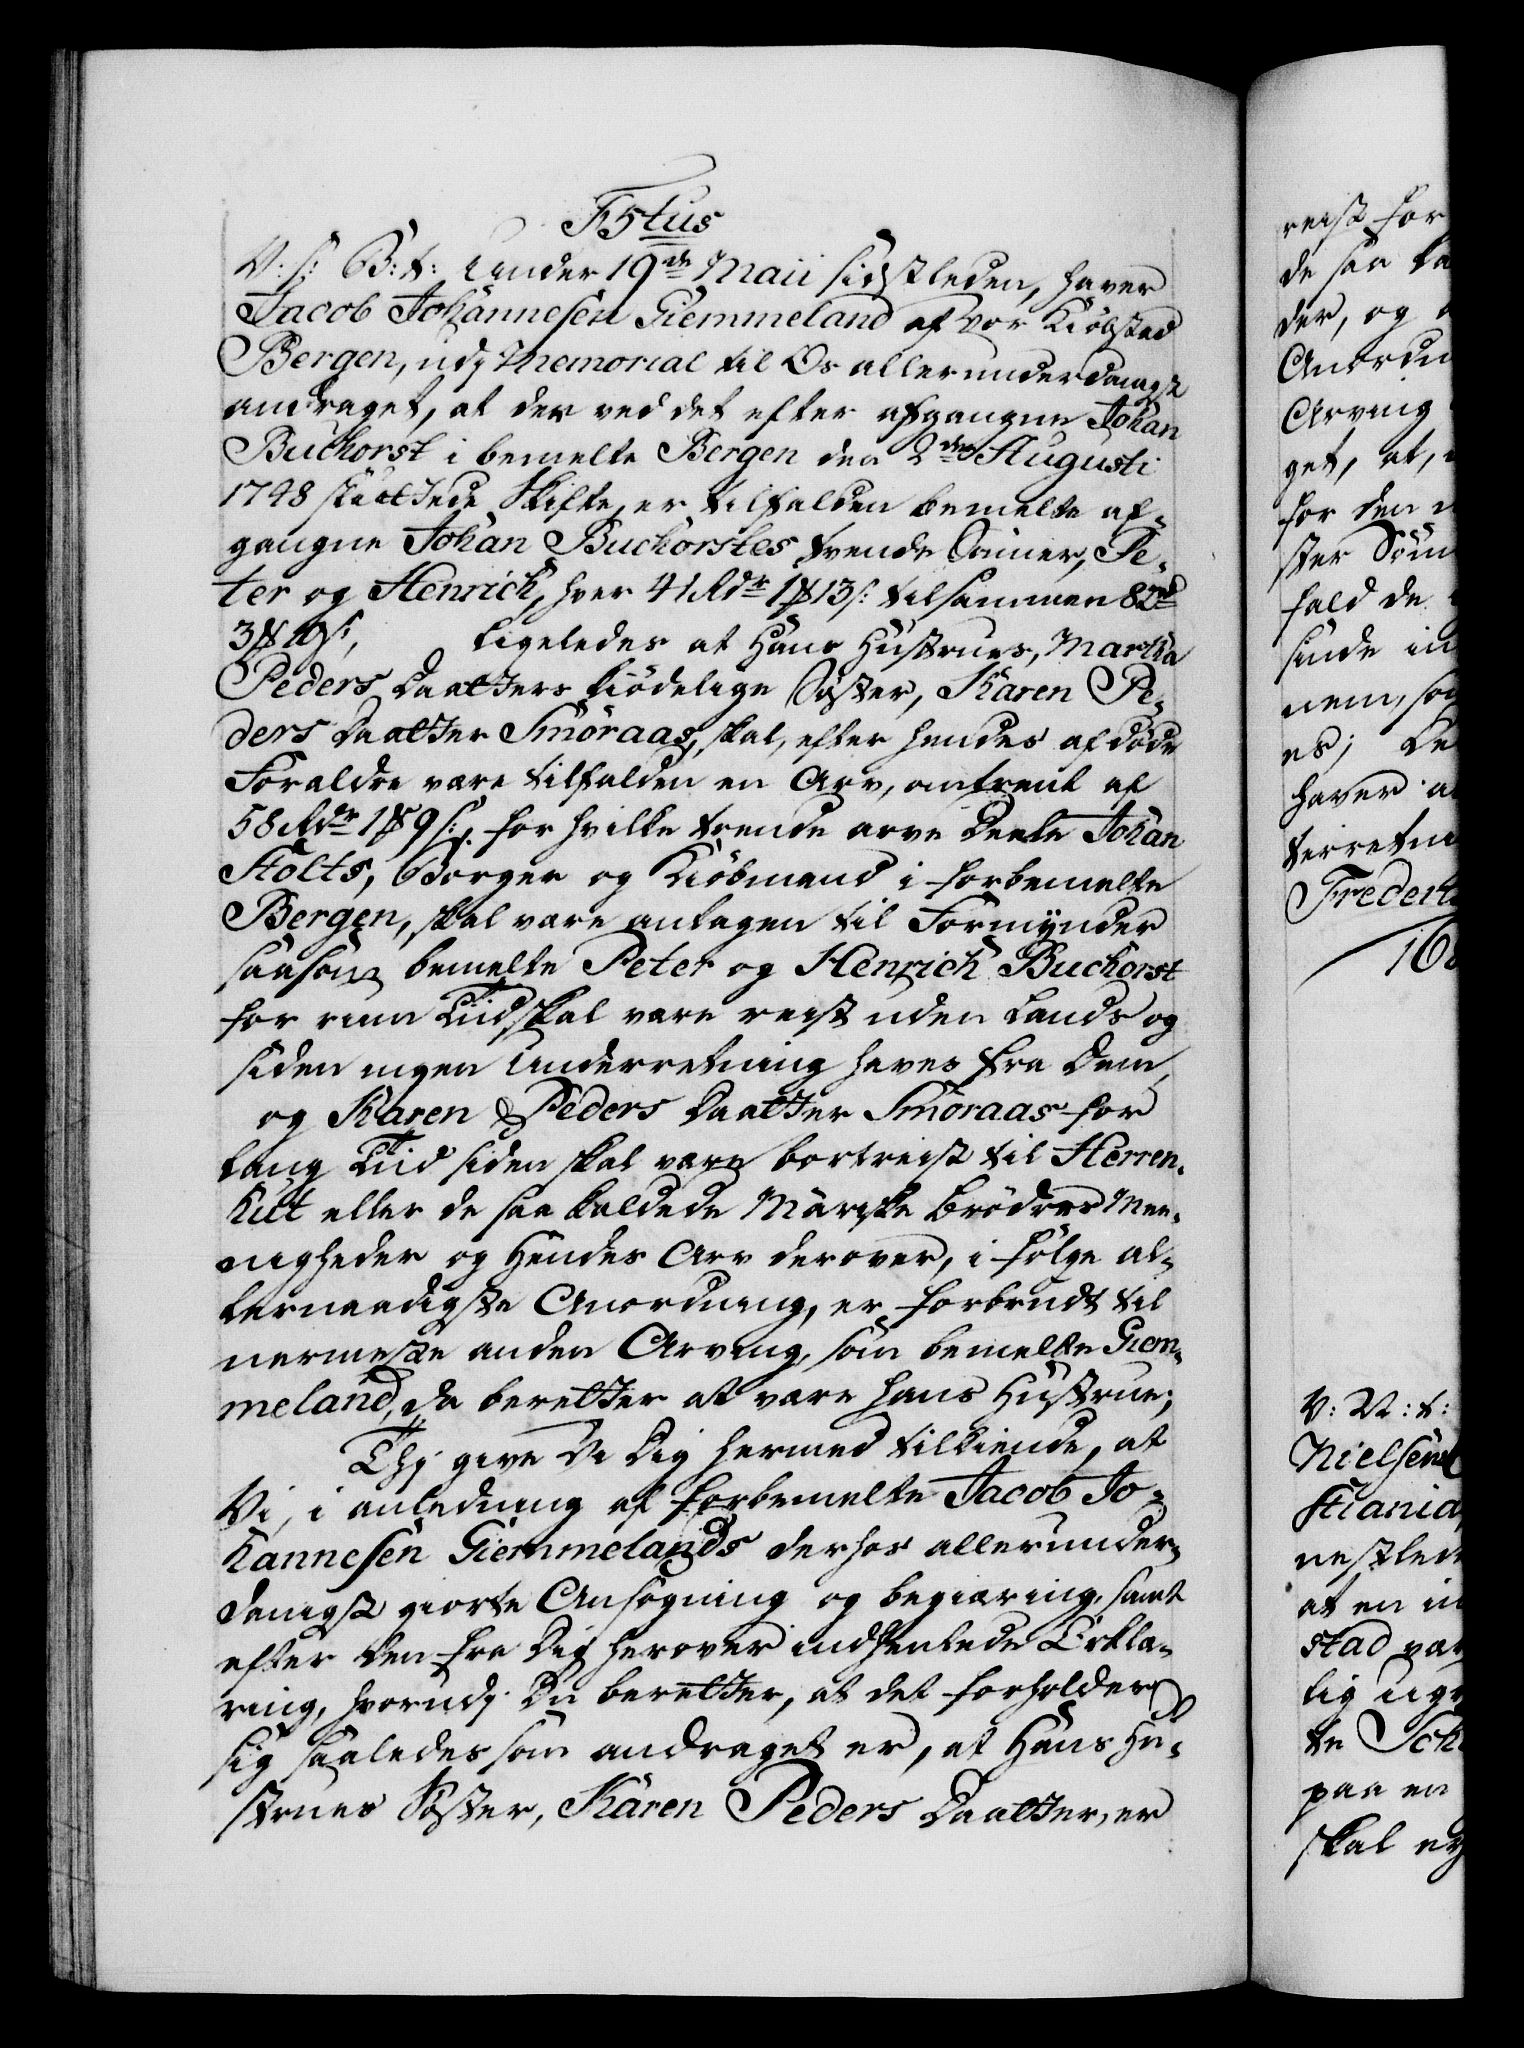 F5tus
V: S: B: t: Under 19de Maii sidstleden, haver
Jacob Johannesen Giemmeland af Vor Kiöbstad
Bergen, udj Memorial til Os allerunderdanigst
andraget, at der ved det efter afgangne Johan
Buchorst i bemelte Bergen den 2den Augusti
1748 sluttede Skifte, er tilfalden bemelte af-
gangne Johan Buchorstes tvende Sönner, Pe-
ter og Henrich, hver 41 Rdr 1 ₰ 13 s: tilsammen 82 rd
3 ₰ 10 s:, ligeledes at Hans Hustrues, Martha
Peders Daatters kiödelige Söster, Karen Pe-
ders Daatter Smöraas, skal, efter hendes afdöde
Forældre være tilfalden en Arv, omtrent af
58 Rdr 1 ₰ 9 s:, for hvilke trende arve Deele Johan
Stolts, Borger og Kiöbmand i forbemelte
Bergen, skal være antagen til Formynder
saasom bemelte Peter og Henrich Buchorst
for rum Tiid skal være reist uden Lands og
siden ingen Underretning haves fra Dem,
og Karen Peders Daatter Smöraas for
lang Tiid siden skal være bortreist til Herren-
hut eller de saa kaldede Märiske Brödres Mee-
nigheder og Hendes Arv derover, i fölge al-
lernaadigste Anordning, er forbrudt til
nermeste anden Arving, som bemelte Giem-
meland, da beretter at være hans Hustrue;
Thj give Vi Dig hermed tilkiende, at
Vi, i anledning af forbemelte Jacob Jo-
hannesen Giemmelands derhos allerunder-
danigst giorte Ansögning og begiæring, samt
efter den fra Dig herover indhentede Erklæ-
ring, hvorudj Du beretter, at det forholder
sig saaledes som andraget er, at Hans Hu-
strues Söster, Karen Peders Daatter, er
reist for
de saa ka
der, og
Anordn
Arving
get, at,
for den
ster Sönn
fald de
sinde in
nem, so
es; De
haver a
terretni
Frederi
V: V: t:
Nielsen
stiania
nestlede
at en in
stad
lig ugr
te Sch
paa en
skal